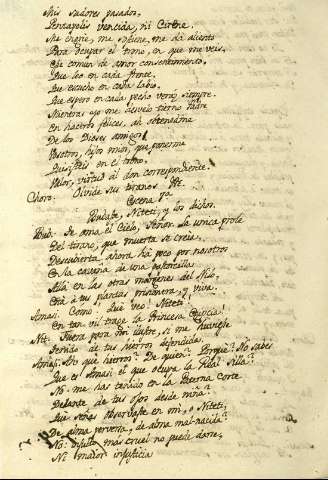 Mis sudores pasados,
Pentapolis vencida, ni Cirene,
Me engrie, me seduce, me da aliento
Para ocupar el trono, en que me veis.
Ese comun de amor consentimiento,
Que leo en cada frente,
Que escucho en cada labio,
Que espero en cada pecho veraz siempre.
Mientras yo me desvelo tierno Padre
En haceros felices, ah obtenedme
De los Dioses amigos
Vosotros, hijos mios, que ponerme
Quisisteis en el trono,
Valor, virtud al don correspondiente.
Choro: Olvide sus tiranos &c.
Escena 7a
Bubaste, Niteti, y los dichos.
Bub: Se ama el Cielo, Señor. La unica prole
Del tirano, que muerta se creia,
Descubierta ahora há poco por nosotros
En la cavaña de una pastorcilla
Allá en las otras margenes del Nilo,
Está á tus plantas prisionera, y viva.
Amasi: Como! Que veo! Niteti!
En tan vil trage la Princesa Egipcia!
Nit: Fuera pera mi ilustre, si me huviese
Ferido de tus hierros defendida.
Amas: En que hierros? De quien? Porque? No sabes
Que es Amasi el que ocupa la Real silla?
No me has tenido en la Paterna Corte
Delante de tus ojos desde niña?
Que señas observaste en mi, o Niteti,
De alma perversa, de alma mal nacida?
No: insulto más cruel no puede darse,
Ni maior injusticia